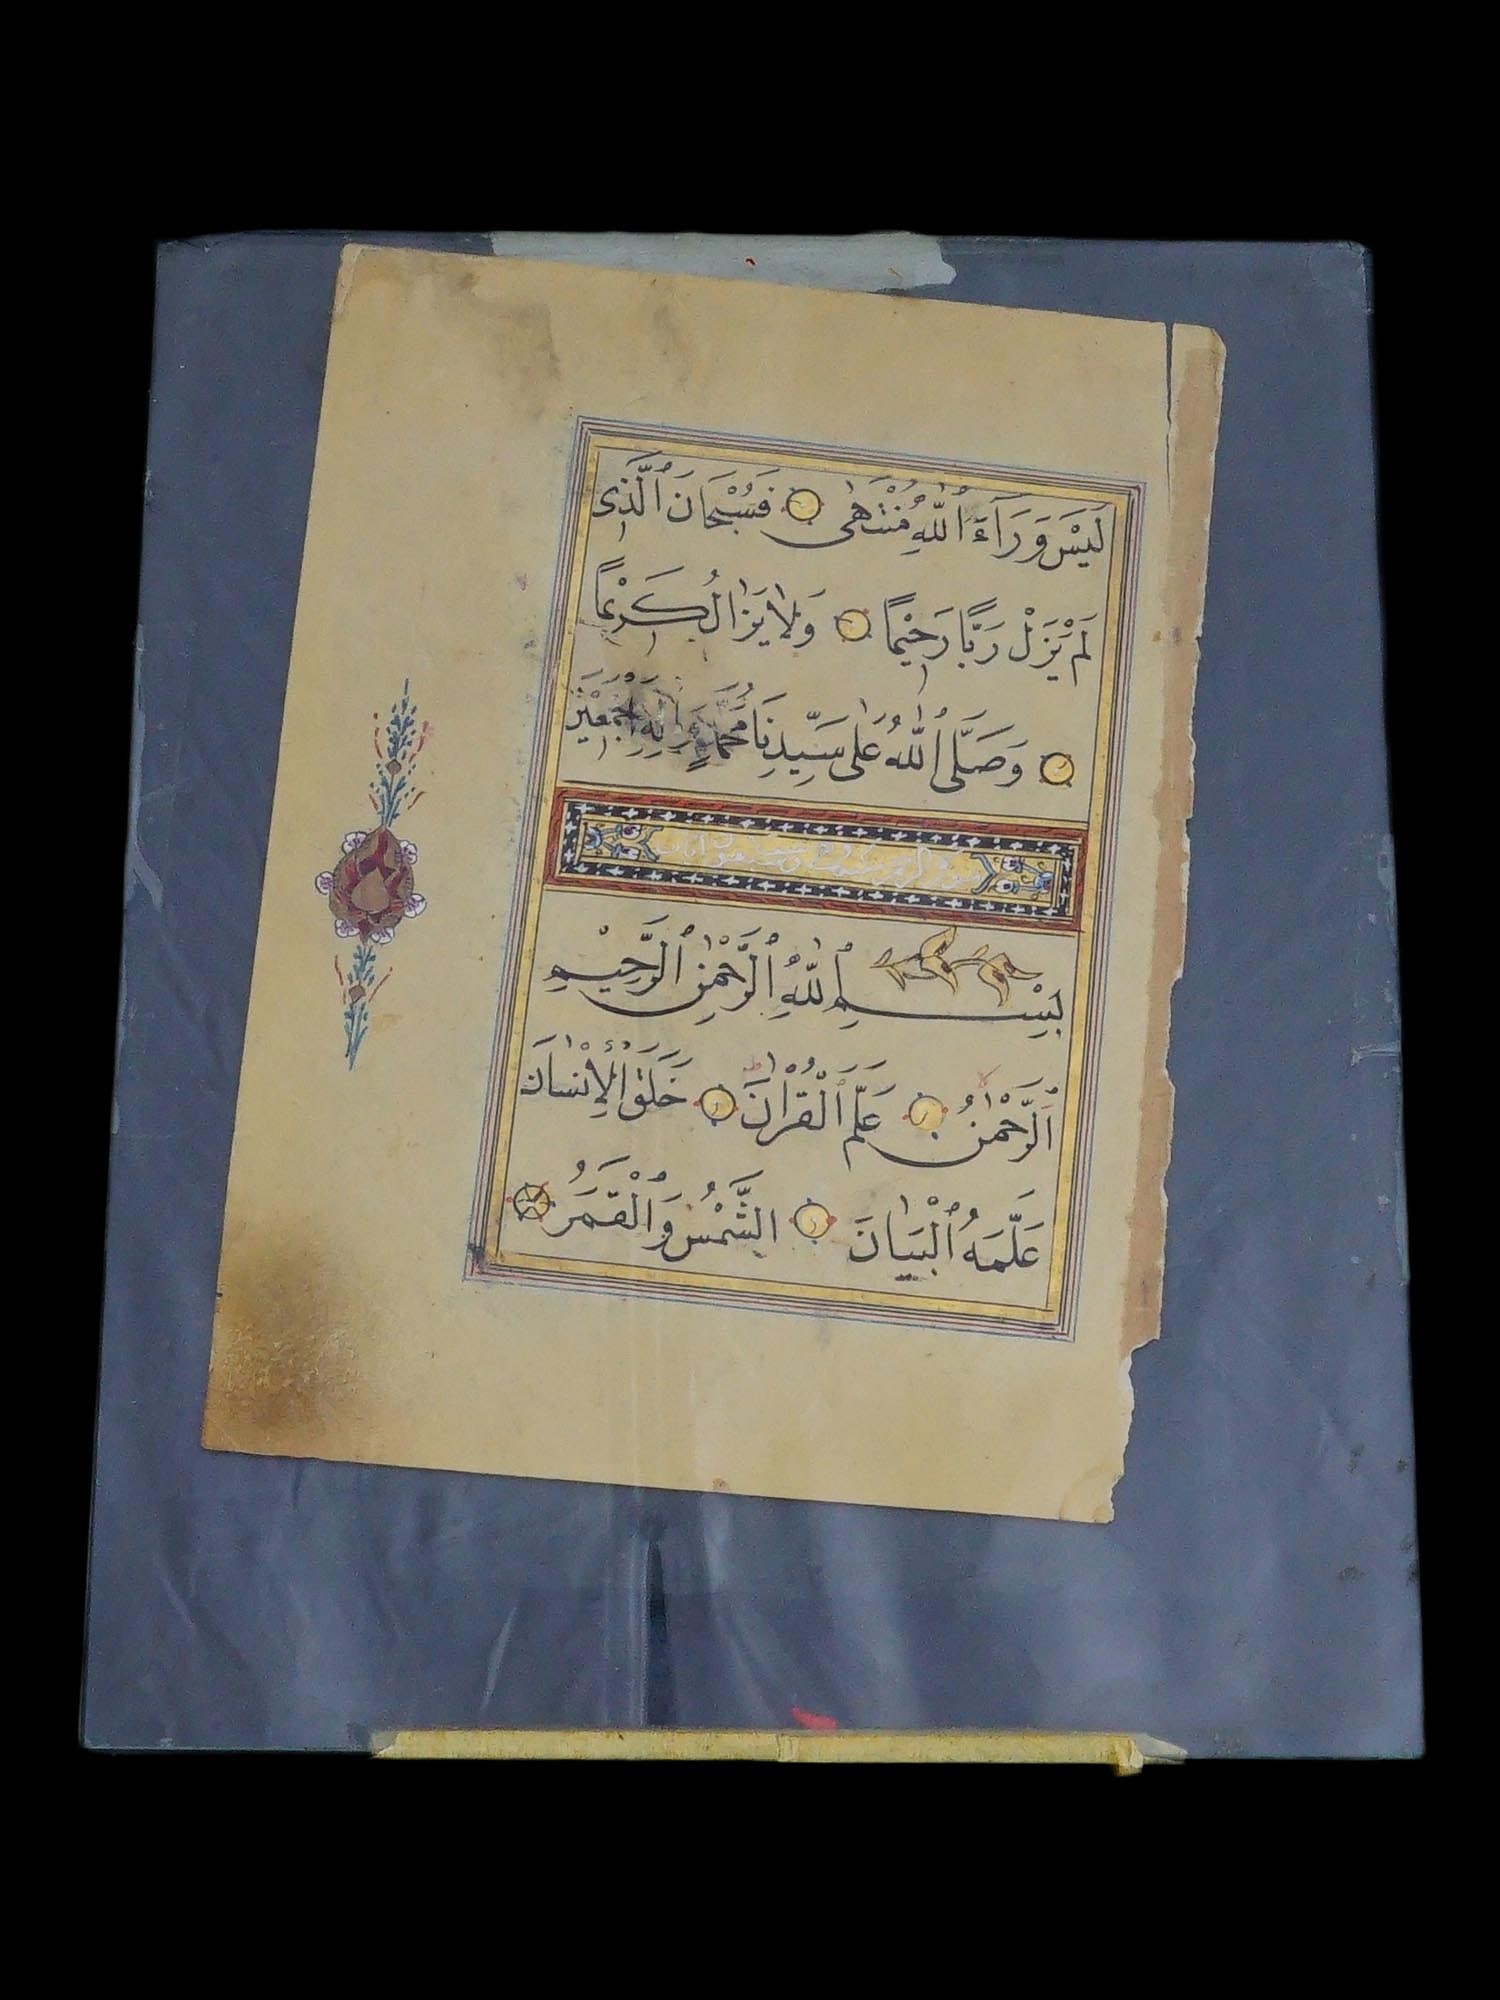 لَيْسَ وَرَآءَ ٱللّٰهِ مُنْتَهٰى ۝ فَسُبْحَانَ ٱلَّذِى
لَمْ يَزَلْ رَبًّا رَحِيْمًا ۝ وَلَا يَزَالُ كَرِيْمًا
۝ وَصَلَّى ٱللّٰهُ عَلٰى سَيِّدِنَا مُحَمَّدٍ وَاٰلِهِ اَجْمَعِيْنَ
بِسْمِ ٱللّٰهِ ٱلرَّحْمٰنِ ٱلرَّحِيْمِ
ٱلرَّحْمٰنُ ۝ عَلَّمَ ٱلْقُرْاٰنَ ۝ خَلَقَ ٱلْاِنْسَانَ
عَلَّمَهُ ٱلْبَيَانَ ۝ الشَّمْسُ وَٱلْقَمَرُ ۝